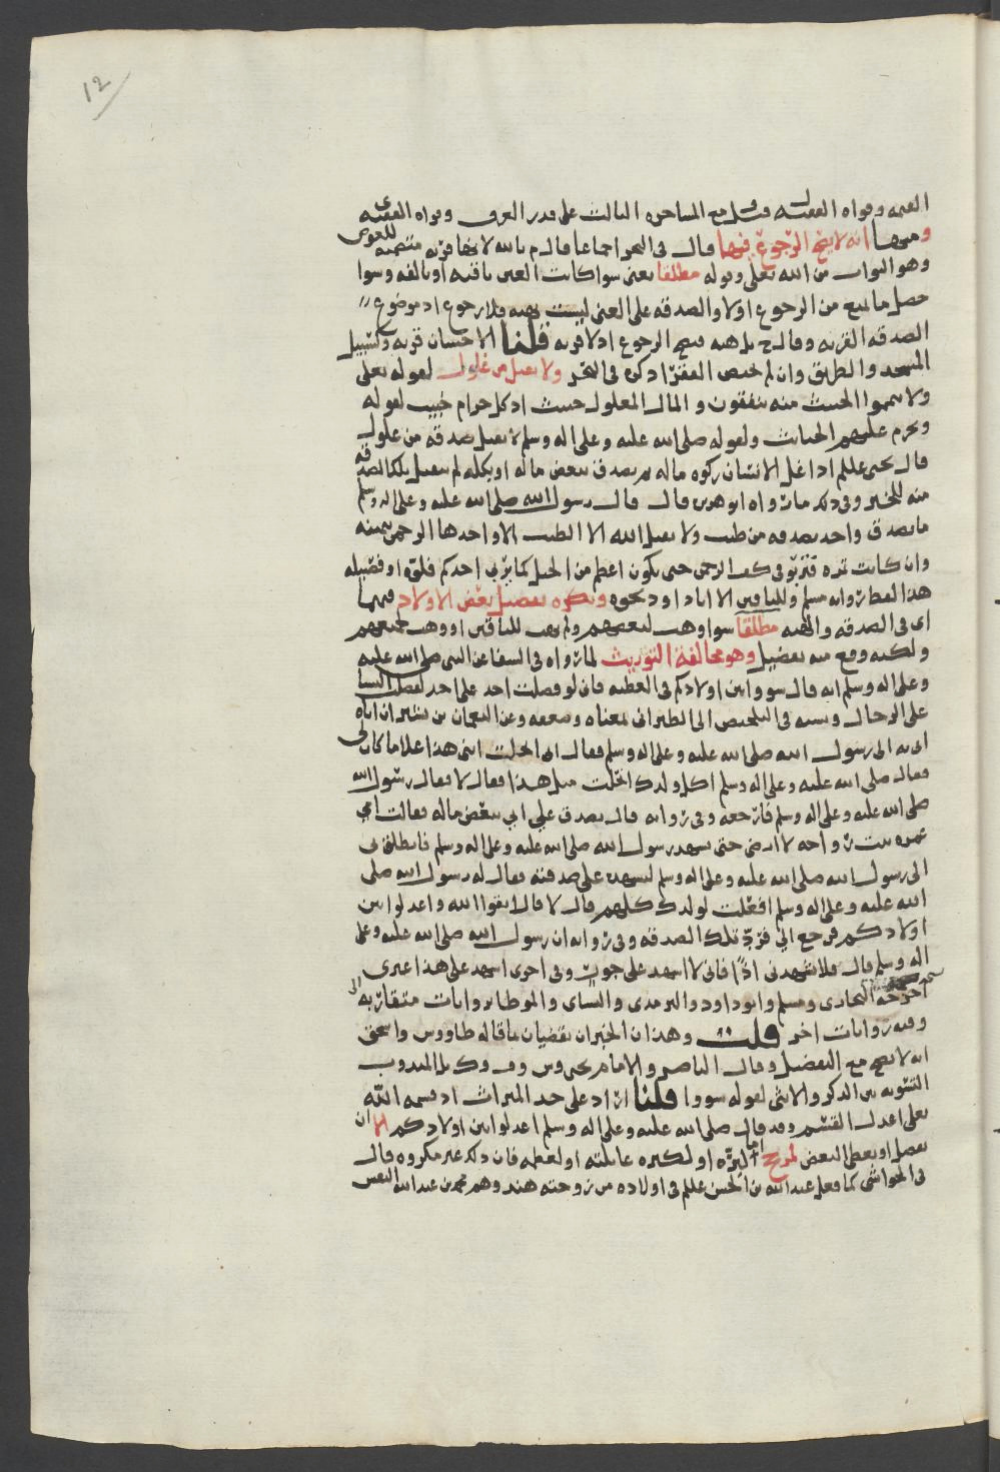 12
القيمه وقواه الفقيه مع المشاحره الثالث على قدر العرف وقواه الفقيه
ومنها انه لا يصح الرجوع فيها قال في البحر اجماعا قال م بالله لانها قربه متضمنه للعوض
وهو الثواب من الله تعلى وقوله مطلقا يعني سوا كانت العين باقيه او تالفه وسوا
حصل ما يمنع من الرجوع اولا والصدقه على الغني ليست بهبه فلا رجوع اذ موضوع
الصدقه القربه وقال ح بل هبه فيصح الرجوع اذ لا قربه قلنا الاحسان قربه وكتسبيل
المسجد والطريق وان لم يخص الفقرا ذكره في البحر ولا تقبل من غلول لقوله تعلى
ولا تيمموا الخبيث منه تنفقون والمال المغلول خبيث اذ كل حرام خبيث لقوله
ويحرم عليهم الخبائث ولقوله صلى الله عليه وعلى اله وسلم لا تقبل صدقه من غلول
قال يحيى عللم اذا غل الانسان زكوه ماله ثم تصدق ببعض ماله او بكله لم تقبل تلك الصدقه
منه للخبر وفي ذلك ما رواه ابو هريره قال قال رسول الله صلى الله عليه وعلى اله وسلم
ما تصدق واحد بصدقه من طيب ولا يقبل الله الا الطيب الا واخذها الرحمن بيمينه
وان كانت تمره فتربو في كف الرحمن حتى تكون اعظم من الجبل كما يربي احدكم فلوّه او فصيله
هذا لفظ روايه مسلم وللباقين الا ابا داود نحوه ويكره تفضيل بعض الاولاد فيهما
اي في الصدقه والهبه مطلقا سوا وهب لبعضهم ولم يهب للباقين او وهب لجميعهم
ولكنه وقع منه تفضيل وهو مخالفة التوريث لما رواه في الشفا عن النبي صلى الله عليه
وعلى اله وسلم انه قال سووا بين اولادكم في العطيه فان لو فضلت احد على احد لفضلت النسا
على الرجال ونسبه في التلخيص الى الطبراني بمعناه وضعفه وعن النعمان بن بشير ان اباه
اتى به الى رسول الله صلى الله عليه وعلى اله وسلم فقال اني نحلت ابني هذا غلاما كان لي
فقال صلى الله عليه وعلى اله وسلم اكل ولدك نحلت مثل هذا فقال لا فقال رسول الله
صلى الله عليه وعلى اله وسلم فارجعه وفي روايه قال تصدق علي ابي ببعض ماله فقالت امي
عمره بنت رواحه لا ارضى حتى تشهد رسول الله صلى الله عليه وعلى اله وسلم فانطلق بي
الى رسول الله صلى الله عليه وعلى اله وسلم ليشهده على صدقته فقال له رسول الله صلى
الله عليه وعلى اله وسلم افعلت لولدك كلهم قال لا قال اتقوا الله واعدلوا بين
اولادكم فرجع ابي فردّ تلك الصدقه وفي روايه ان رسول الله صلى الله عليه وعلى
اله وسلم قال فلا تشهدني اذًا فاني لا اشهد على جور وفي اخرى اشهد على هذا غيري
اخرجه البخاري ومسلم وابو داود والترمذي والنسائي والموطا بروايات متقاربه
وفيه روايات اخر قلت وهذان الخبران يقضيان بما قاله طاووس واسحق
انه لا يصح مع التفضيل وقال الناصر والامام يحيى وش وف وك بل المندوب
التسويه بين الذكر والانثى لقوله سووا قلنا اراد على حد الميراث اذ قسمه الله
تعلى اعدل القسم وقد قال صلى الله عليه وعلى اله وسلم اعدلوا بين اولادكم الا ان
يفضل او يعطى البعض لمرجح اما لبرّه او لكثره عائلته او لعلمه فان ذلك غير مكروه قال
في الحواشي كما فعل عبدالله بن الحسن عللم في اولاده من زوجته هند وهم محمد بن عبدالله النفس